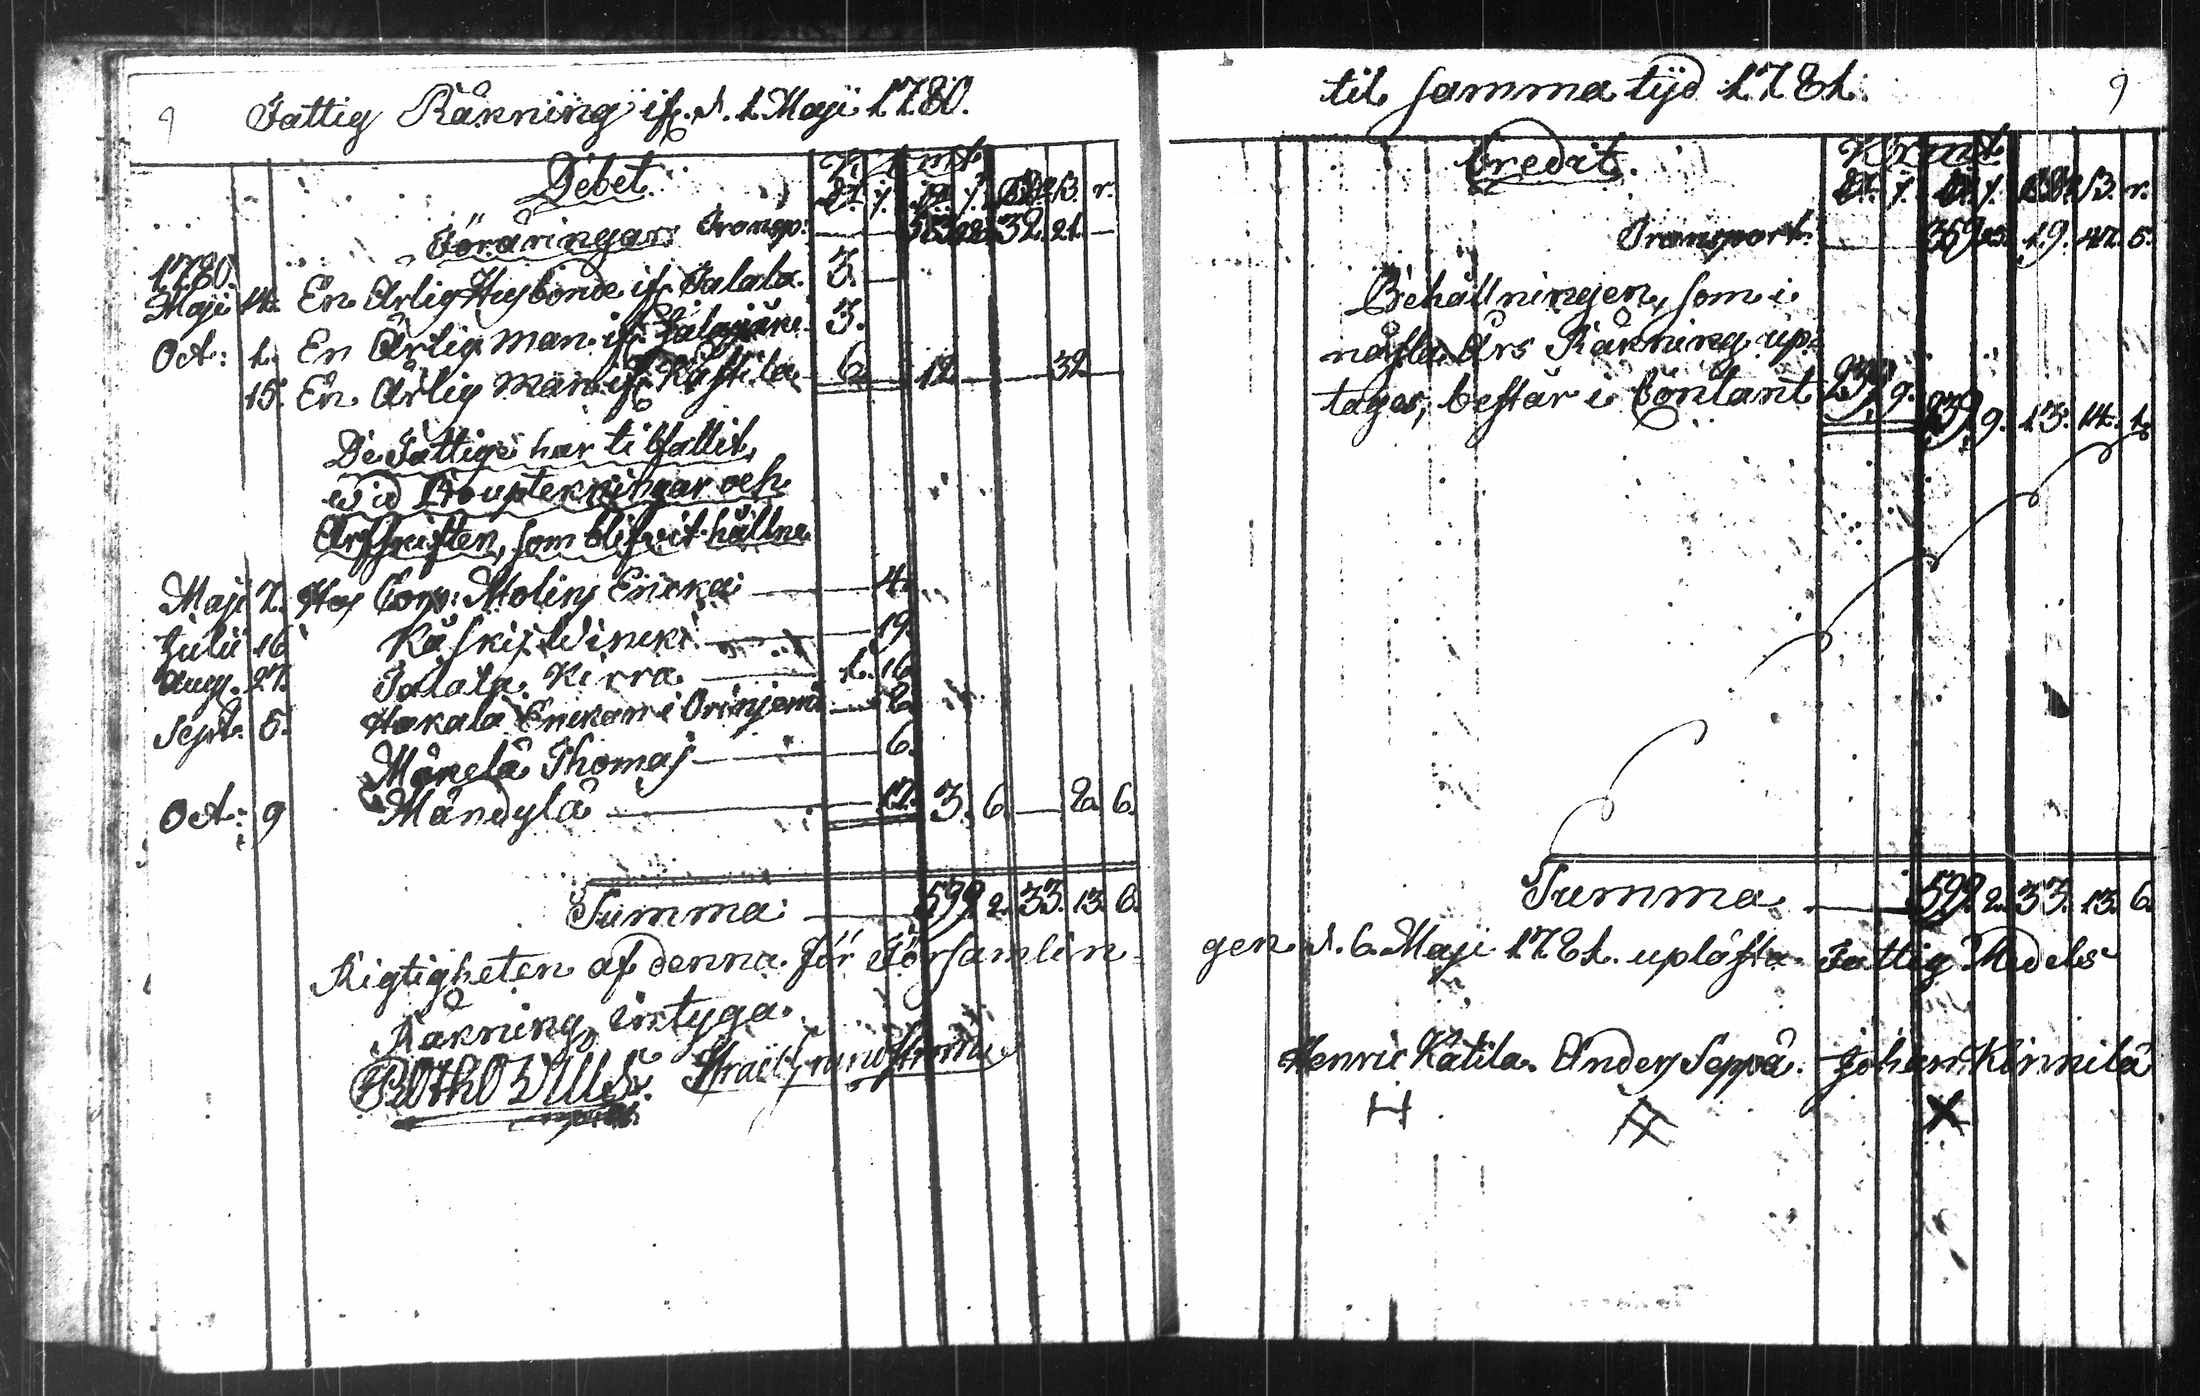 9 Fattig Räkning ifr. d. 1 Maji 1780.
Debet.
Föräringar. Transp: 32. 21. —
1780.
Maji 14. En Ärlig Husbonde ifr. Jalala. 3. —
Oct: 1. En Ärlig Man ifr. 3.
15. En Ärlig Man ifr. Kästila 6. 12. — 32. —
De Fattige har tilfallit,
wid Bouptekningar och
Arfskiften, som blifwit hållne
Maji 7. Hos Corp: Molins Encka — 4.
Julii 16 Käskis Wincki — 19.
Aug. 27. Jalala Kirra — 1. 16
Sept. 5. Hakala Enckan i — 2.
Mäkelä Thomas — 6.
Oct: 9 Mändylä — 17. 3. 6. — 2. 6.
Summa — 599. 2. 33. 13. 6.
Rigtigheten af denna för Församlin-
Räkning, intyga.
til samma tyd 1781. 9
Credit.
Transport. — 369 23. 19. 47. 5.
Behållningen, som i
nästa Års Räkning up-
tages, består i Contant 9. 9. 13. 14. 1.
Summa. — 599. 2. 33. 13. 6.
gen d. 6 Maji 1781. upläste Fattig Medels
Henric Katila. Anders Seppä. Johan Kinnilä
H
X